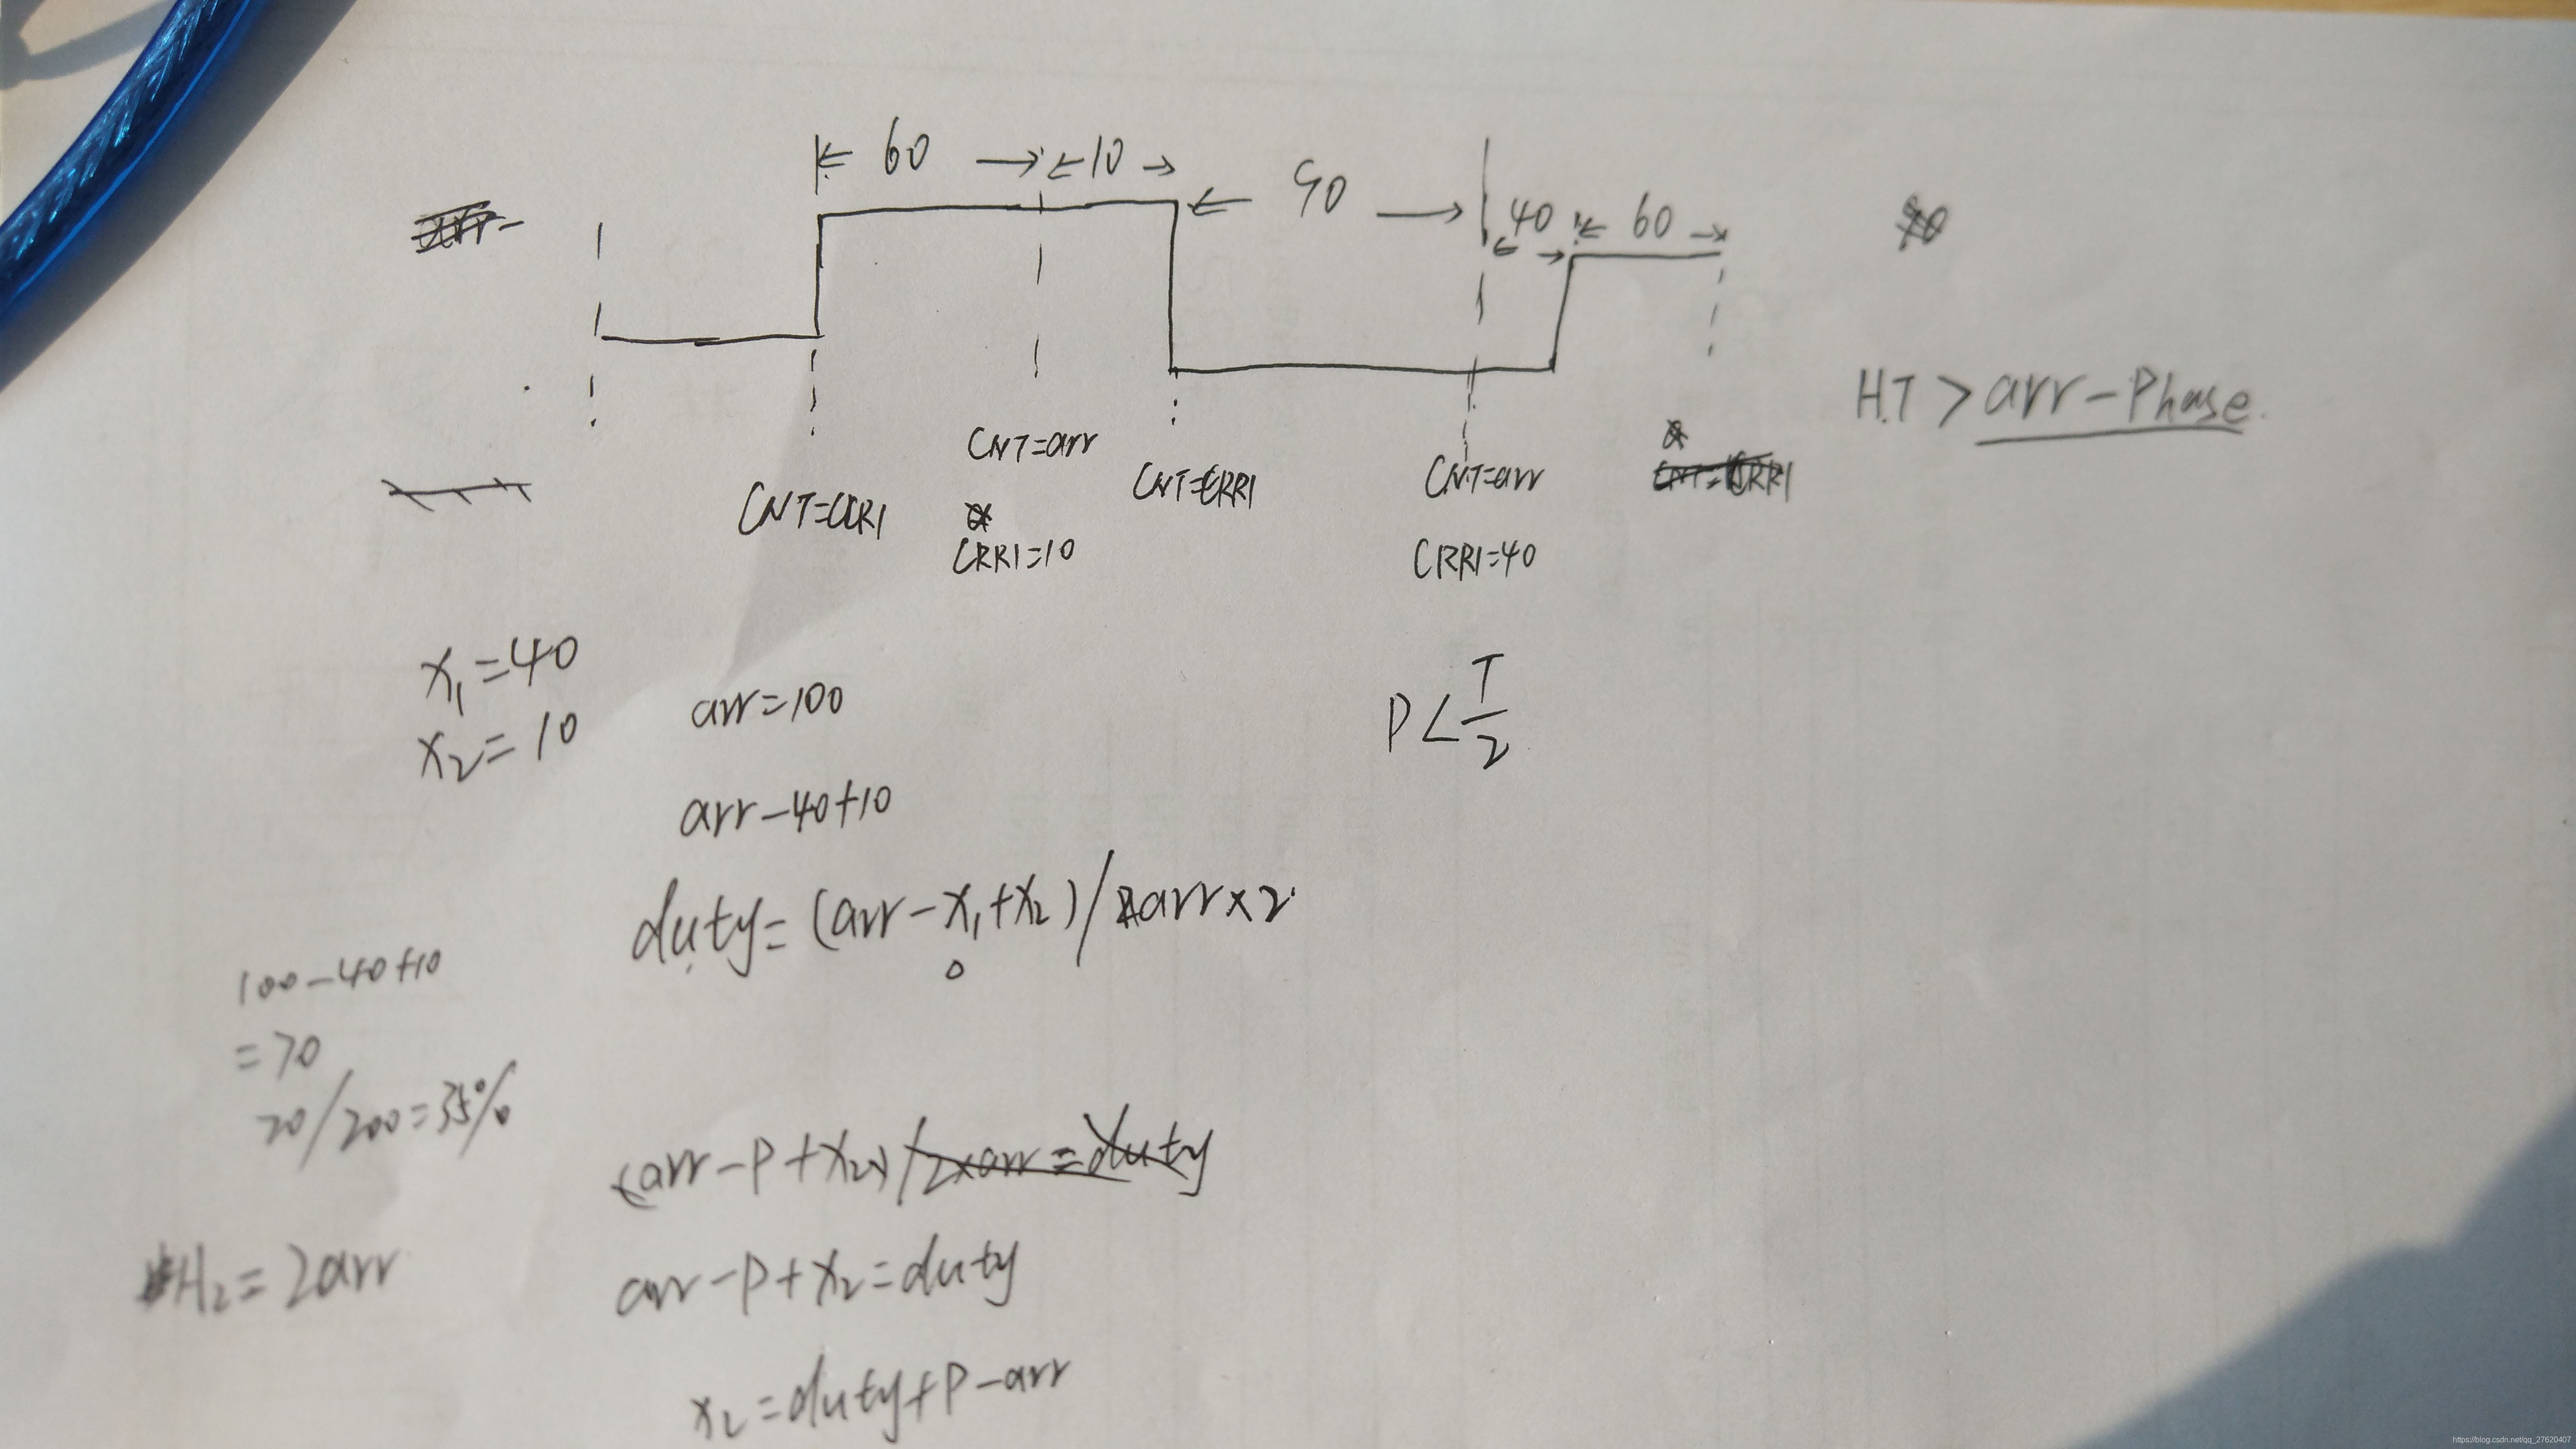 60
10
90
40
60
H.T > arr-Phase
CNT=arr
CNT=CCR1
CNT=CRR1
CNT=arr
CNT=CRR1
CRR1=10
CRR1=40
x₁=40
x₂=10
arr=100
P<T/2
arr-40+10
duty=(arr-x₁+x₂)/2arr×2
100-40+10
=70
70/200=35%
(arr-P+x₂)/2×arr=duty
H₂=2arr
arr-P+x₂=duty
x₂=duty+P-arr
https://blog.csdn.net/qq_27620407